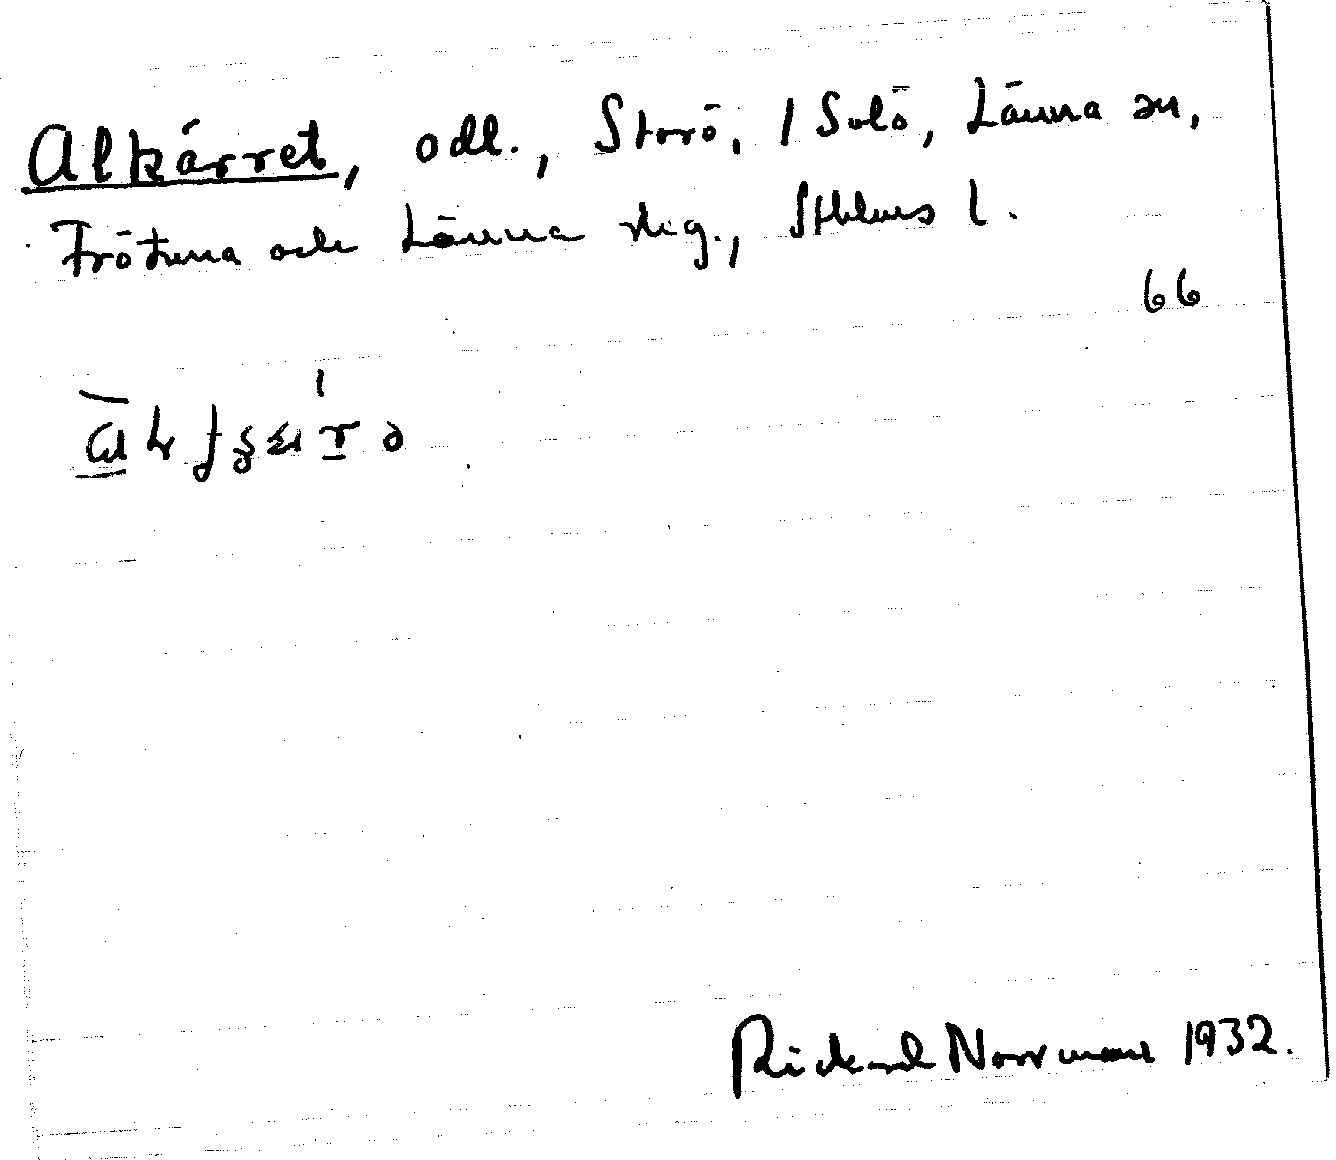 Alkärret, odl., Storö, / Solö, Länna sn,
Frötuna och Länna skg., Sthlms l.
66
Rickard Norrman 1932.